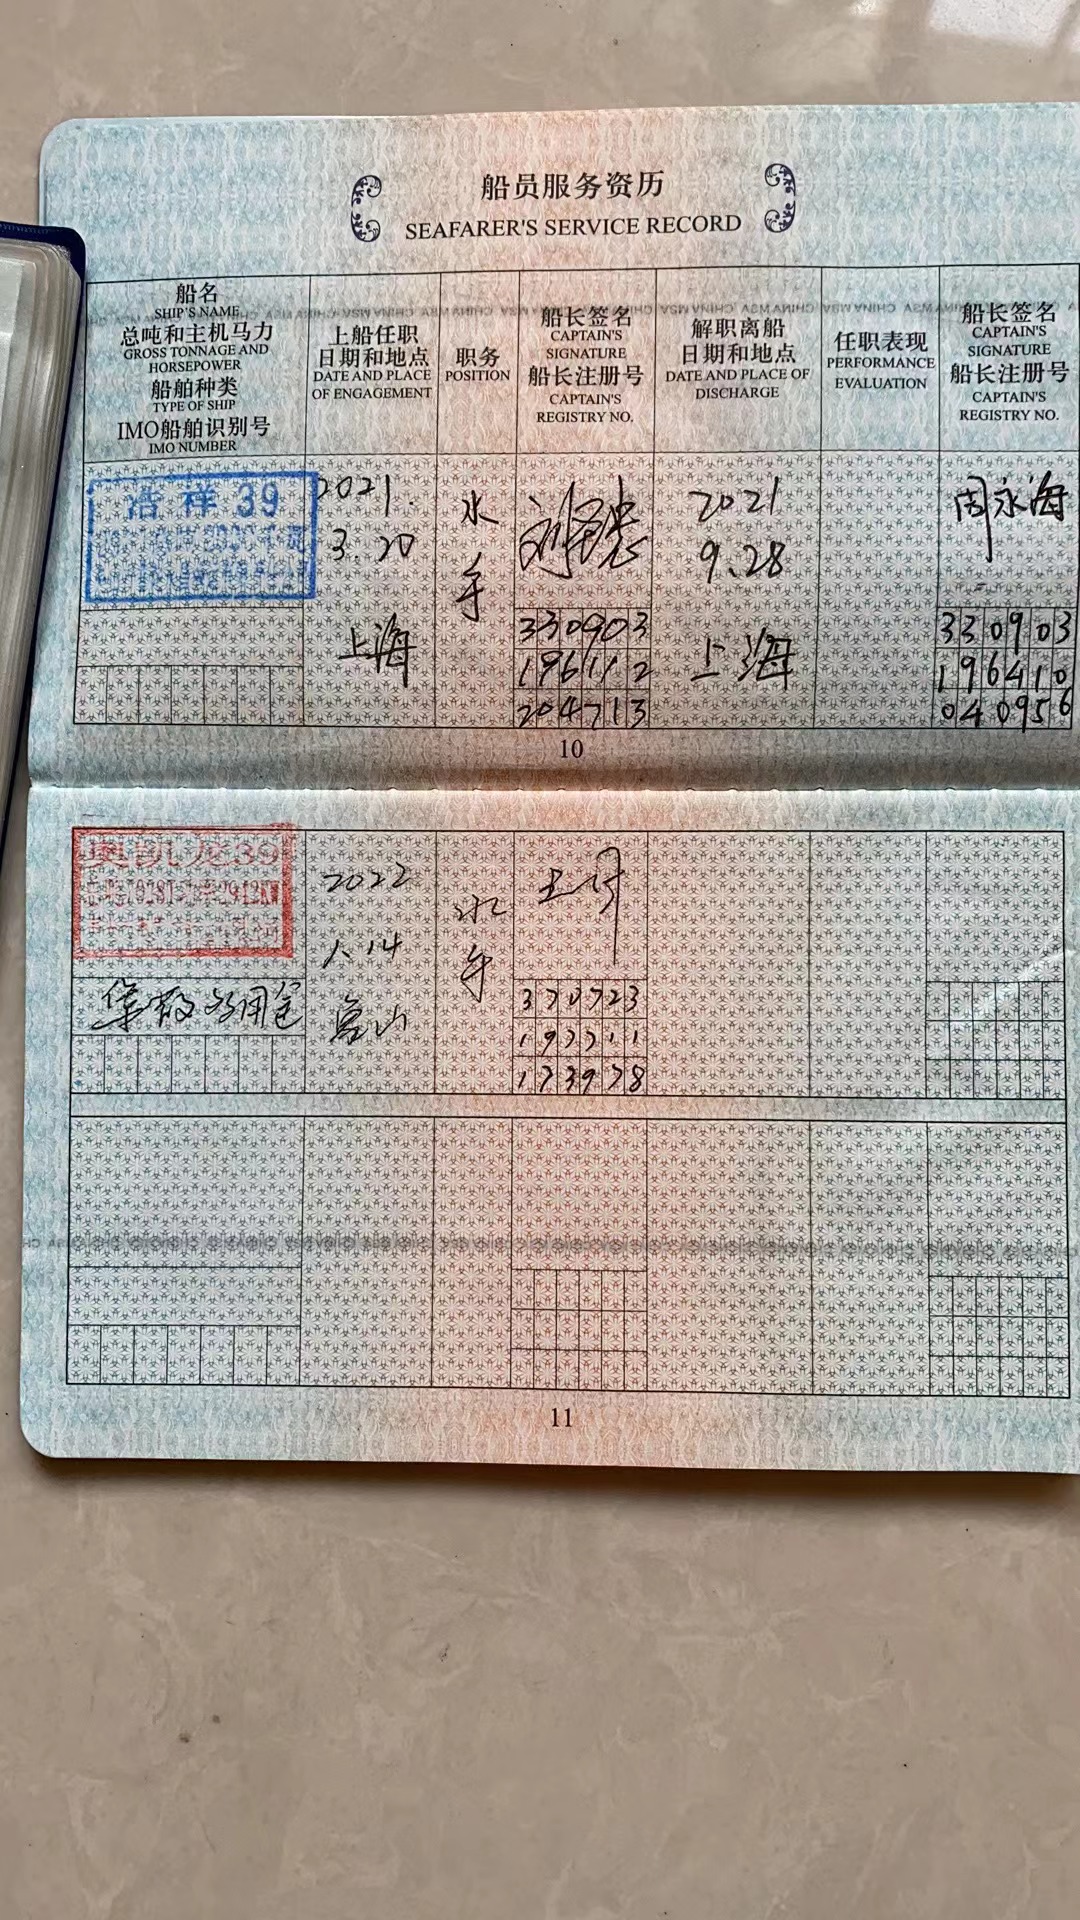 船员服务资历
SEAFARER'S SERVICE RECORD
船名
SHIP'S NAME
总吨和主机马力
GROSS TONNAGE AND
HORSEPOWER
船舶种类
TYPE OF SHIP
IMO船舶识别号
IMO NUMBER
上船任职
日期和地点
DATE AND PLACE
OF ENGAGEMENT
职务
POSITION
船长签名
CAPTAIN'S
SIGNATURE
船长注册号
CAPTAIN'S
REGISTRY NO.
解职离船
日期和地点
DATE AND PLACE OF
DISCHARGE
任职表现
PERFORMANCE
EVALUATION
船长签名
CAPTAIN'S
SIGNATURE
船长注册号
CAPTAIN'S
REGISTRY NO.
浩祥39
2021.
3.20
上海
水
手
330903
196112
204713
2021
9.28
上海
周永海
330903
196410
040956
10
39
2022
1.14
水
手
11